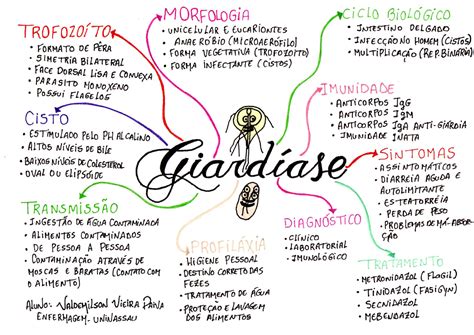 TROFOZOÍTO
• FORMATO DE PÊRA
• SIMETRIA BILATERAL
• FACE DORSAL LISA E CONVEXA
• PARASITO MONOXENO
• POSSUI FLAGELOS
MORFOLOGIA
• UNICELULAR E EUCARIONTES
• ANAERÓBIO (MICROAERÓFILO)
• FORMA VEGETATIVA (TROFOZOITO)
• FORMA INFECTANTE (CISTOS)
CICLO BIOLÓGICO
• INTESTINO DELGADO
• INFECÇÃO NO HOMEM (CISTOS)
• MULTIPLICAÇÃO (REP. BINÁRIA)
CISTO
• ESTIMULADO PELO PH ALCALINO
• ALTOS NÍVEIS DE BILE
• BAIXOS NÍVEIS DE COLESTEROL
• OVAL OU ELIPSÓIDE
IMUNIDADE
• ANTICORPOS IgG
• ANTICORPOS IgM
• ANTICORPOS IgA ANTI-GIÁRDIA
• IMUNIDADE INATA
Giardíase
SINTOMAS
• ASSINTOMÁTICOS
• DIARREIA AGUDA E
AUTOLIMITANTE
• ESTEATORREIA
• PERDA DE PESO
• PROBLEMAS DE MÁ-ABSOR-
ÇÃO
TRANSMISSÃO
• INGESTÃO DE ÁGUA CONTAMINADA
• ALIMENTOS CONTAMINADOS
• DE PESSOA A PESSOA
• CONTAMINAÇÃO ATRAVÉS DE
MOSCAS E BARATAS (CONTATO COM
O ALIMENTO)
PROFILÁXIA
• HIGIENE PESSOAL
• DESTINO CORRETO DAS
FEZES
• TRATAMENTO DE ÁGUA
• PROTEÇÃO E LAVAGEM
DOS ALIMENTOS
DIAGNÓSTICO
• CLÍNICO
• LABORATORIAL
• IMUNOLÓGICO
TRATAMENTO
• METRONIDAZOL (FLAGIL)
• TINIDAZOL (FASIGYN)
• SECNIDAZOL
• MEBENDAZOL
ALUNO: VALDEMILSON VIEIRA PAIVA
ENFERMAGEM - UNINASSAU